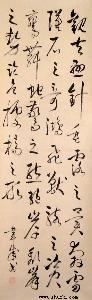 觀夫懸針垂露之異奔雷
墜石之奇鴻飛獸駭之資
鸞舞蛇驚之態絕岸頹峯
之勢臨危據槁之形